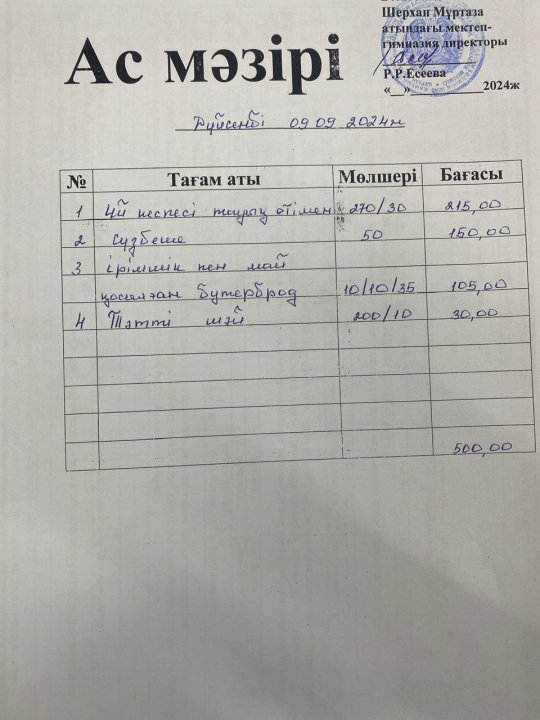 Шерхан Мұртаза
атындағы мектеп-
гимназия директоры
Р.Р.Есеева
«__»__________2024ж
Ас мәзірі
Дүйсенбі 09 09 2024ж
№ Тағам аты Мөлшері Бағасы
1 Үй кеспесі тауық етімен 270/30 215,00
2 Сүзбеше 50 150,00
3 ірімшік пен май
қосылған бутерброд 10/10/35 105,00
4 Тәтті шәй 200/10 30,00
500,00